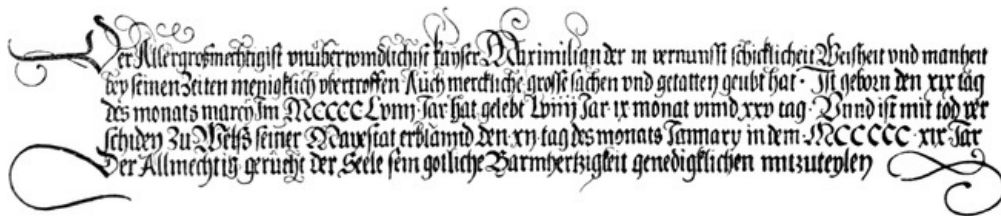 Der Allergroßmechtigist vnüberwindlichist kayser Maximilian der in vernunfft schicklicheit Weisheit vnd manheit
bey seinen Zeiten menigklich vbertroffen Auch merckliche grosse sachen vnd getatten geubt hat · Ist geborn den xix tag
des monats marcy Im MCCCCLviiij Jar hat gelebt lviiij Jar ix monat vnnd xxv tag · Vnnd ist mit tod ver
schyden Zu Welß seiner Mayestat erblannd den · xij tag des monats Jannuary in dem · MCCCCC · xix Jar
Der Allmechtig gerucht der Seele sein gotliche Barmhertzigkeit genedigklichen mitzuteylen